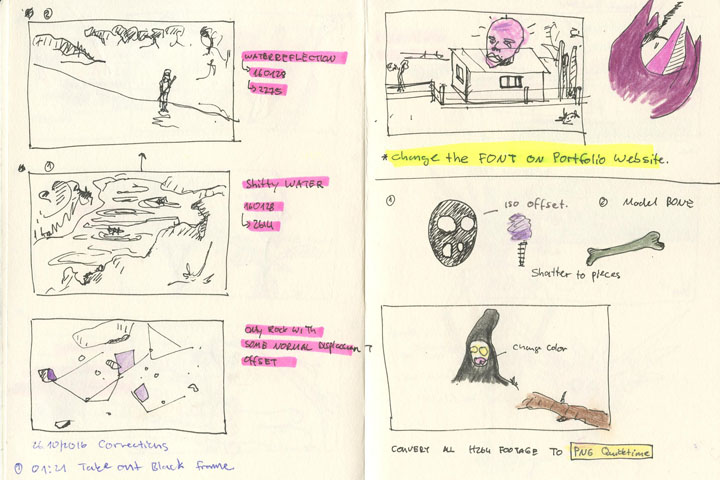 ②
WATERREFLECTION
↳ 160128
↳ 2275
①
Shitty WATER
160128
↳ 2614
Only Rock WITH
SOME NORMAL Displacement
OFFSET
26.10/2016 Corrections
① 01:21 Take out Black frame
* Change the FONT ON Portfolio Website.
①
iso offset.
② Model BONE
Shatter to pieces
Change color
CONVERT ALL H264 FOOTAGE TO PNG Quicktime